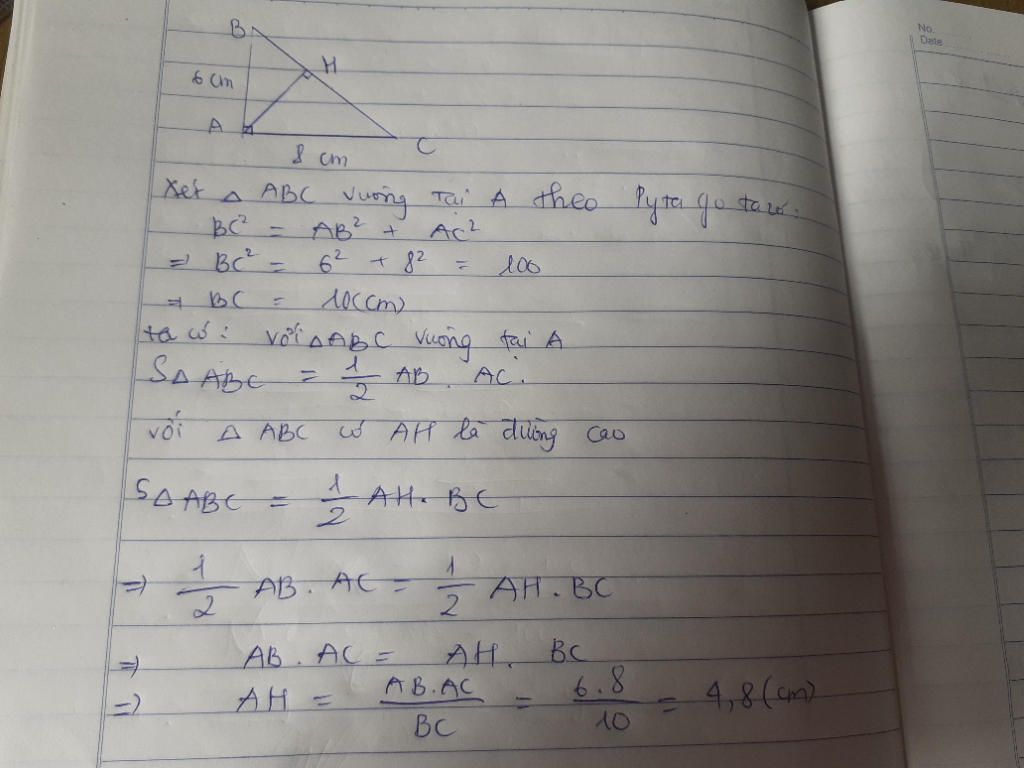 No.
Date
B
H
6 cm
A
C
8 cm
Xét △ ABC vuông tại A theo Pytago ta có:
BC² = AB² + AC²
⇒ BC² = 6² + 8² = 100
⇒ BC = 10(cm)
ta có: với △ABC vuông tại A
S△ABC = 1/2 AB. AC.
với △ ABC có AH là đường cao
S△ABC = 1/2 AH. BC
⇒ 1/2 AB. AC = 1/2 AH. BC
⇒ AB. AC = AH. BC
⇒ AH = AB.AC/BC = 6.8/10 = 4,8(cm)